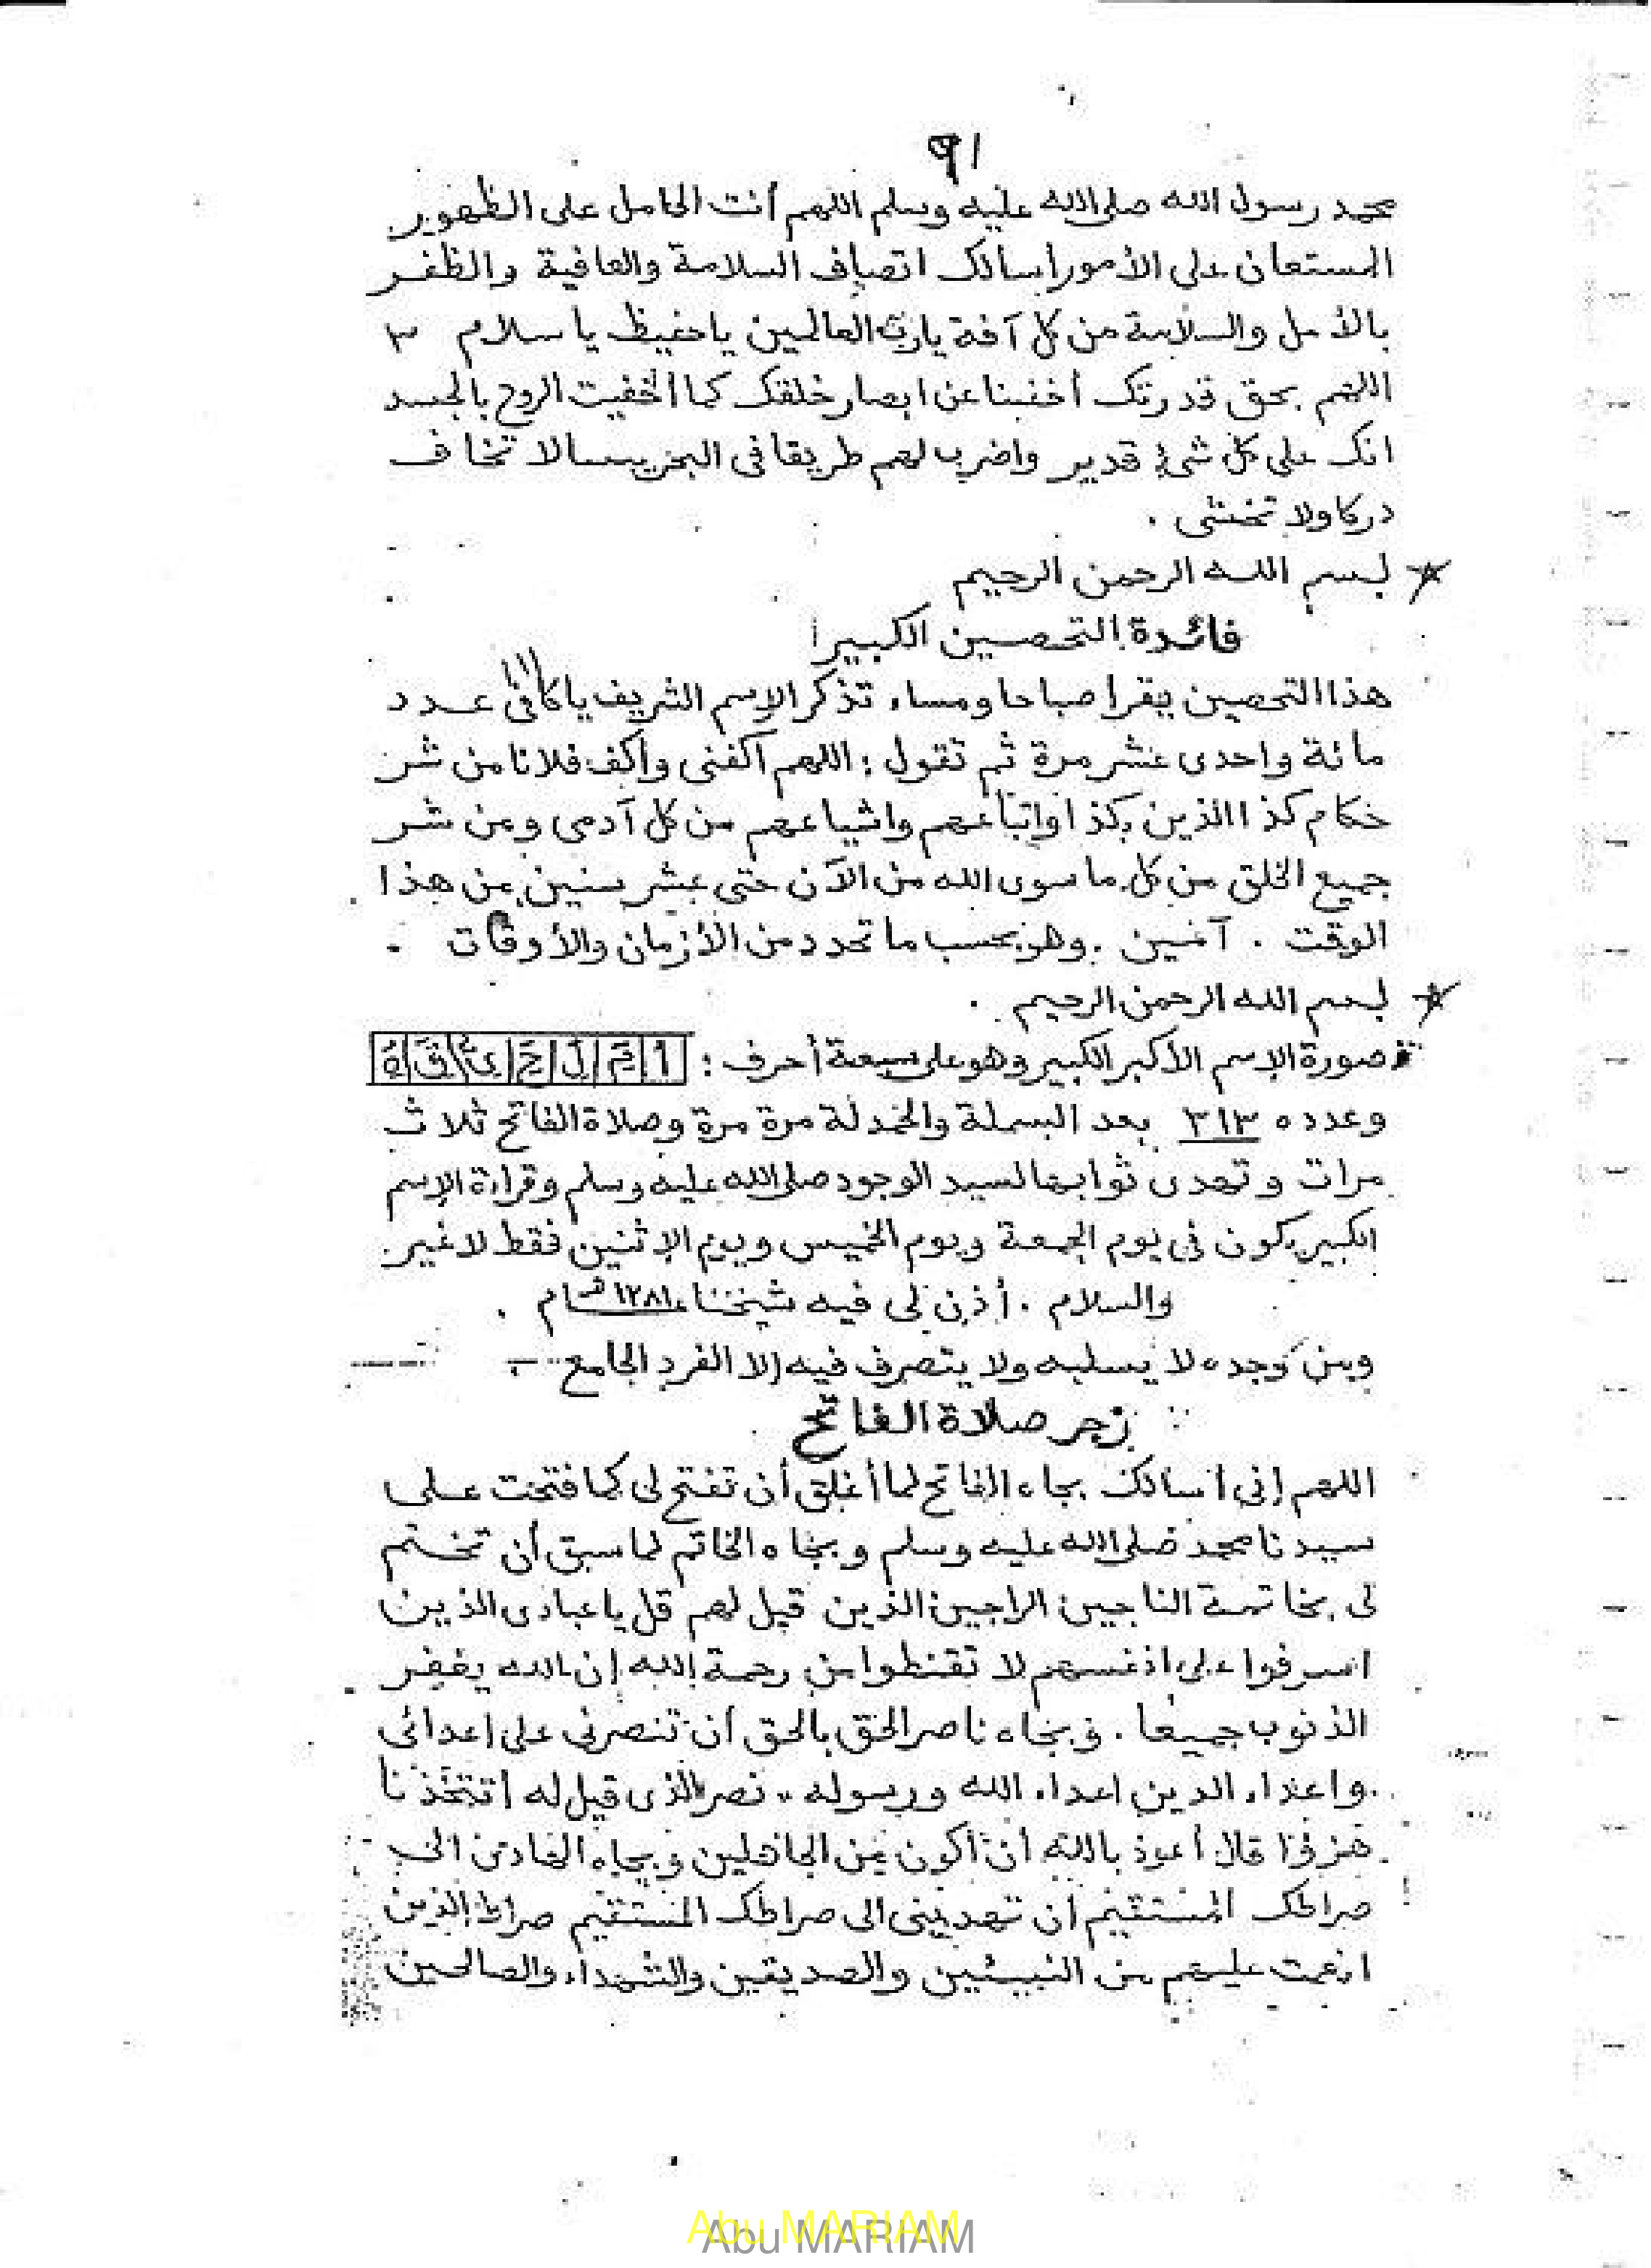 ٩١
محمد رسول الله صلى الله عليه وسلم اللهم أنت الحامل على الظهور
المستعان على الأمور أسألك اتصاف السلامة والعافية والظفر
بالأمل والسلامة من كل آفة يارب العالمين ياحفيظ ياسلام ٣
اللهم بحق قدرتك أخفنا عن ابصار خلقك كما أخفيت الروح بالجسد
انك على كل شئ قدير واضرب لهم طريقا فى البحر يبسا لا تخاف
دركا ولا تخشى .
بسم الله الرحمن الرحيم
فائدة التحصين الكبير
هذا التحصين يقرا صباحا ومساء تذكر الإسم الشريف ياكافى ١١١ عدد
مائة واحدى عشر مرة ثم تقول : اللهم أكفنى وأكف فلانا من شر
حكام كذا الذين بكذا واتباعهم واشياعهم من كل آدمى ومن شر
جميع الخلق من كل ما سوى الله من الآن حتى عشر سنين من هذا
الوقت . آمين . وهو بحسب ما تحدد من الأزمان والأوقات .
بسم الله الرحمن الرحيم .
صورة الإسم الأكبر الكبير وهو على سبعة أحرف : أ م ل ح ى ق ة
وعدده ٣١٣ بعد البسملة والحمدلة مرة مرة وصلاة الفاتح ثلاث
مرات وتهدى ثوابها لسيد الوجود صلى الله عليه وسلم وقراءة الإسم
الكبير يكون فى يوم الجمعة ويوم الخميس ويوم الإثنين فقط لا غير
والسلام . أذن لى فيه شيخنا عام ١٢٨١ .
ومن وجده لا يسلبه ولا يتصرف فيه إلا الفرد الجامع
زجر صلاة الفاتح
اللهم إنى أسالك بجاه الفاتح لما أغلق أن تفتح لى كما فتحت على
سيدنا محمد صلى الله عليه وسلم وبجاه الخاتم لما سبق أن تختم
لى بخاتمة الناجين الراجين الذين قيل لهم قل ياعبادى الذين
اسرفوا على انفسهم لا تقنطوا من رحمة الله إن الله يغفر
الذنوب جميعا . وبجاه ناصر الحق بالحق أن تنصرنى على اعدائى
واعداء الدين اعداء الله ورسوله نصر الذى قيل له أتتخذنا
هزؤا قال أعوذ بالله أن أكون من الجاهلين وبجاه الهادى الى
صراطك المستقيم أن تهدينى الى صراطك المستقيم صراط الذين
انعمت عليهم من النبيئين والصديقين والشهداء والصالحين
Abu MARIAM